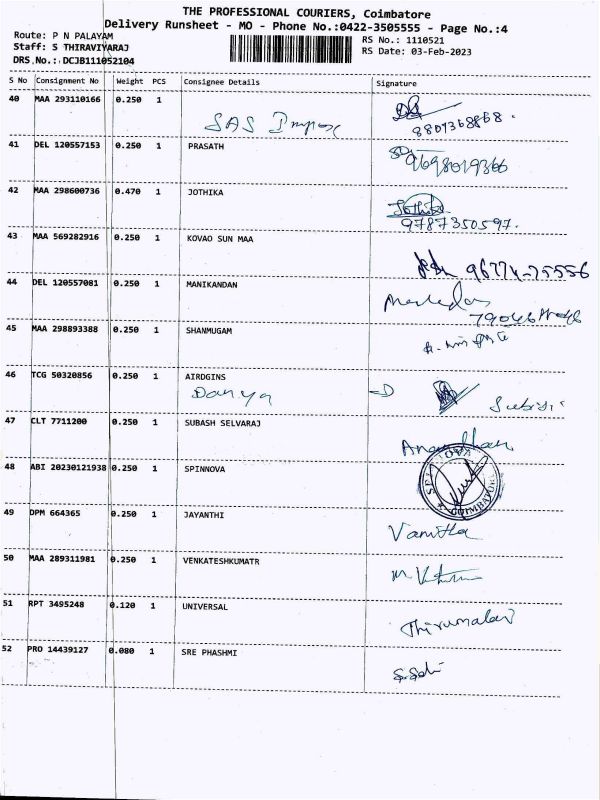 THE PROFESSIONAL COURIERS, Coimbatore
Delivery Runsheet - MO - Phone No.:0422-3505555 - Page No.:4
Route: P N PALAYAM
Staff: S THIRAVIYARAJ
DRS.No.: DCJB111052104
RS No.: 1110521
RS Date: 03-Feb-2023
S No Consignment No Weight PCS Consignee Details Signature
40 MAA 293110166 0.250 1
SAS Impex
8807368868.
41 DEL 120557153 0.250 1 PRASATH
9698019366
42 MAA 298600736 0.470 1 JOTHIKA
Jothika
9787350597.
43 MAA 569282916 0.250 1 KOVAO SUN MAA
96774-75556
44 DEL 120557081 0.250 1 MANIKANDAN
45 MAA 298893388 0.250 1 SHANMUGAM
46 TCG 50320856 0.250 1 AIRDGINS
Danya
47 CLT 7711200 0.250 1 SUBASH SELVARAJ
48 ABI 20230121938 0.250 1 SPINNOVA
COIMBATORE
49 DPM 664365 0.250 1 JAYANTHI
Vanitha
50 MAA 289311981 0.250 1 VENKATESHKUMATR
51 RPT 3495248 0.120 1 UNIVERSAL
Thirumalai
52 PRO 14439127 0.080 1 SRE PHASHMI